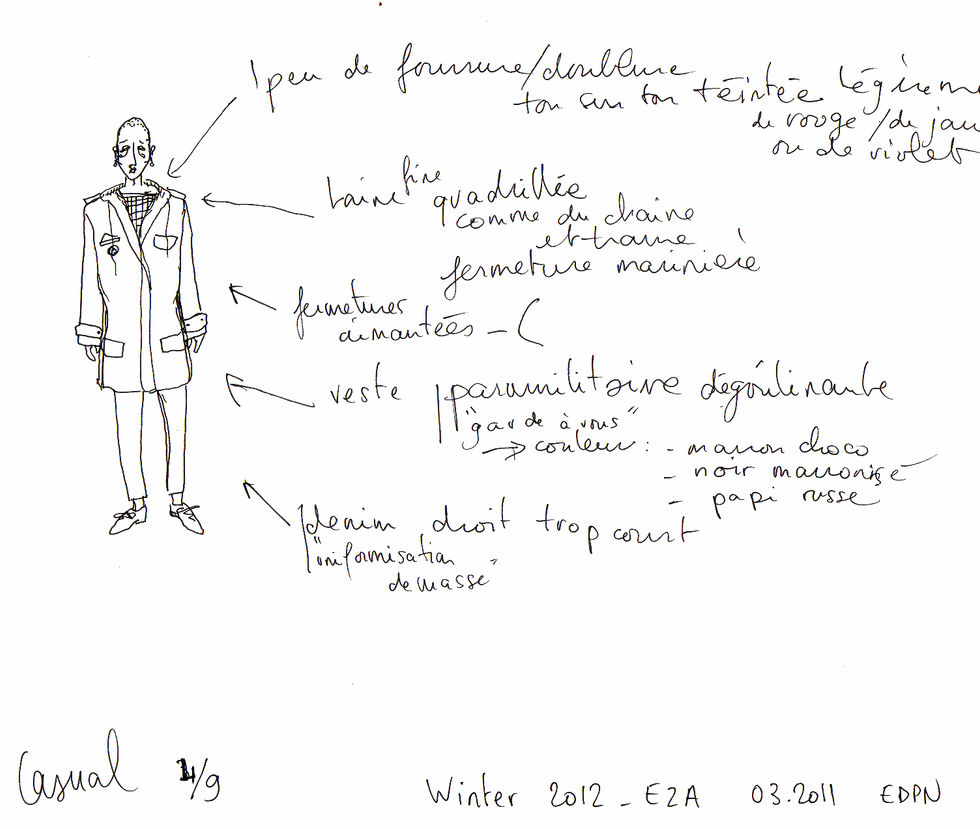 1 peu de fourrure/doublure
ton sur ton teintée légèrem
de rouge /de jau
ou de violet
laine fine quadrillée
comme du chaine
et trame
fermeture marinière
fermetures
aimantées – (
veste paramilitaire dégoulinante
"garde à vous"
→ couleur : - marron choco
- noir marronisé
- papi russe
denim droit trop court
"uniformisation
de masse"
Casual 1/9
Winter 2012 - E2A 03.2011 EDPN